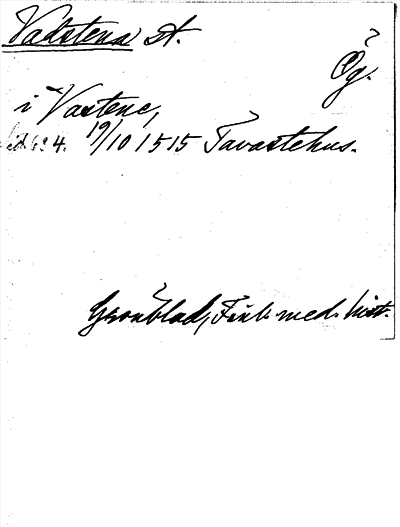 Vadstena st.
Ög.
i Vastene,
sid 634. 19/10 1515 Tavastehus.
Grönblad, Finl. med. hist.